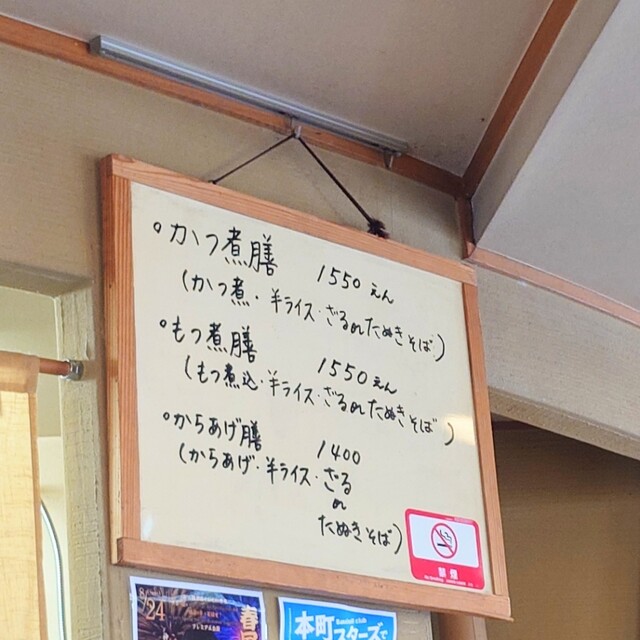 ・かつ煮膳 1550えん
(かつ煮・半ライス・ざるorたぬきそば)
・もつ煮膳 1550えん
(もつ煮込・半ライス・ざるorたぬきそば)
・からあげ膳 1400
(からあげ・半ライス・ざる
or
たぬきそば)
禁煙
8/24
本町スターズで